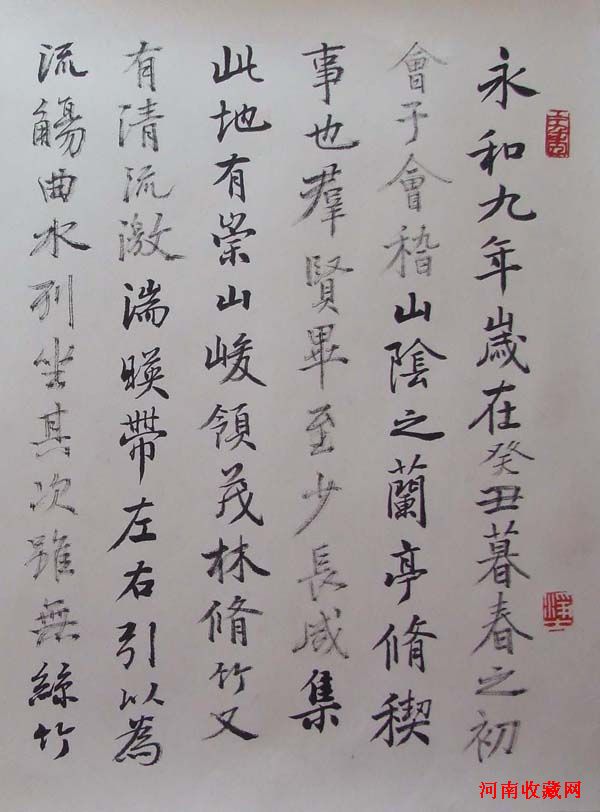 永和九年歲在癸丑暮春之初
會于會稽山陰之蘭亭脩稧
事也羣賢畢至少長咸集
此地有崇山峻領茂林脩竹又
有清流激湍暎帶左右引以為
流觴曲水列坐其次雖無絲竹
河南收藏网